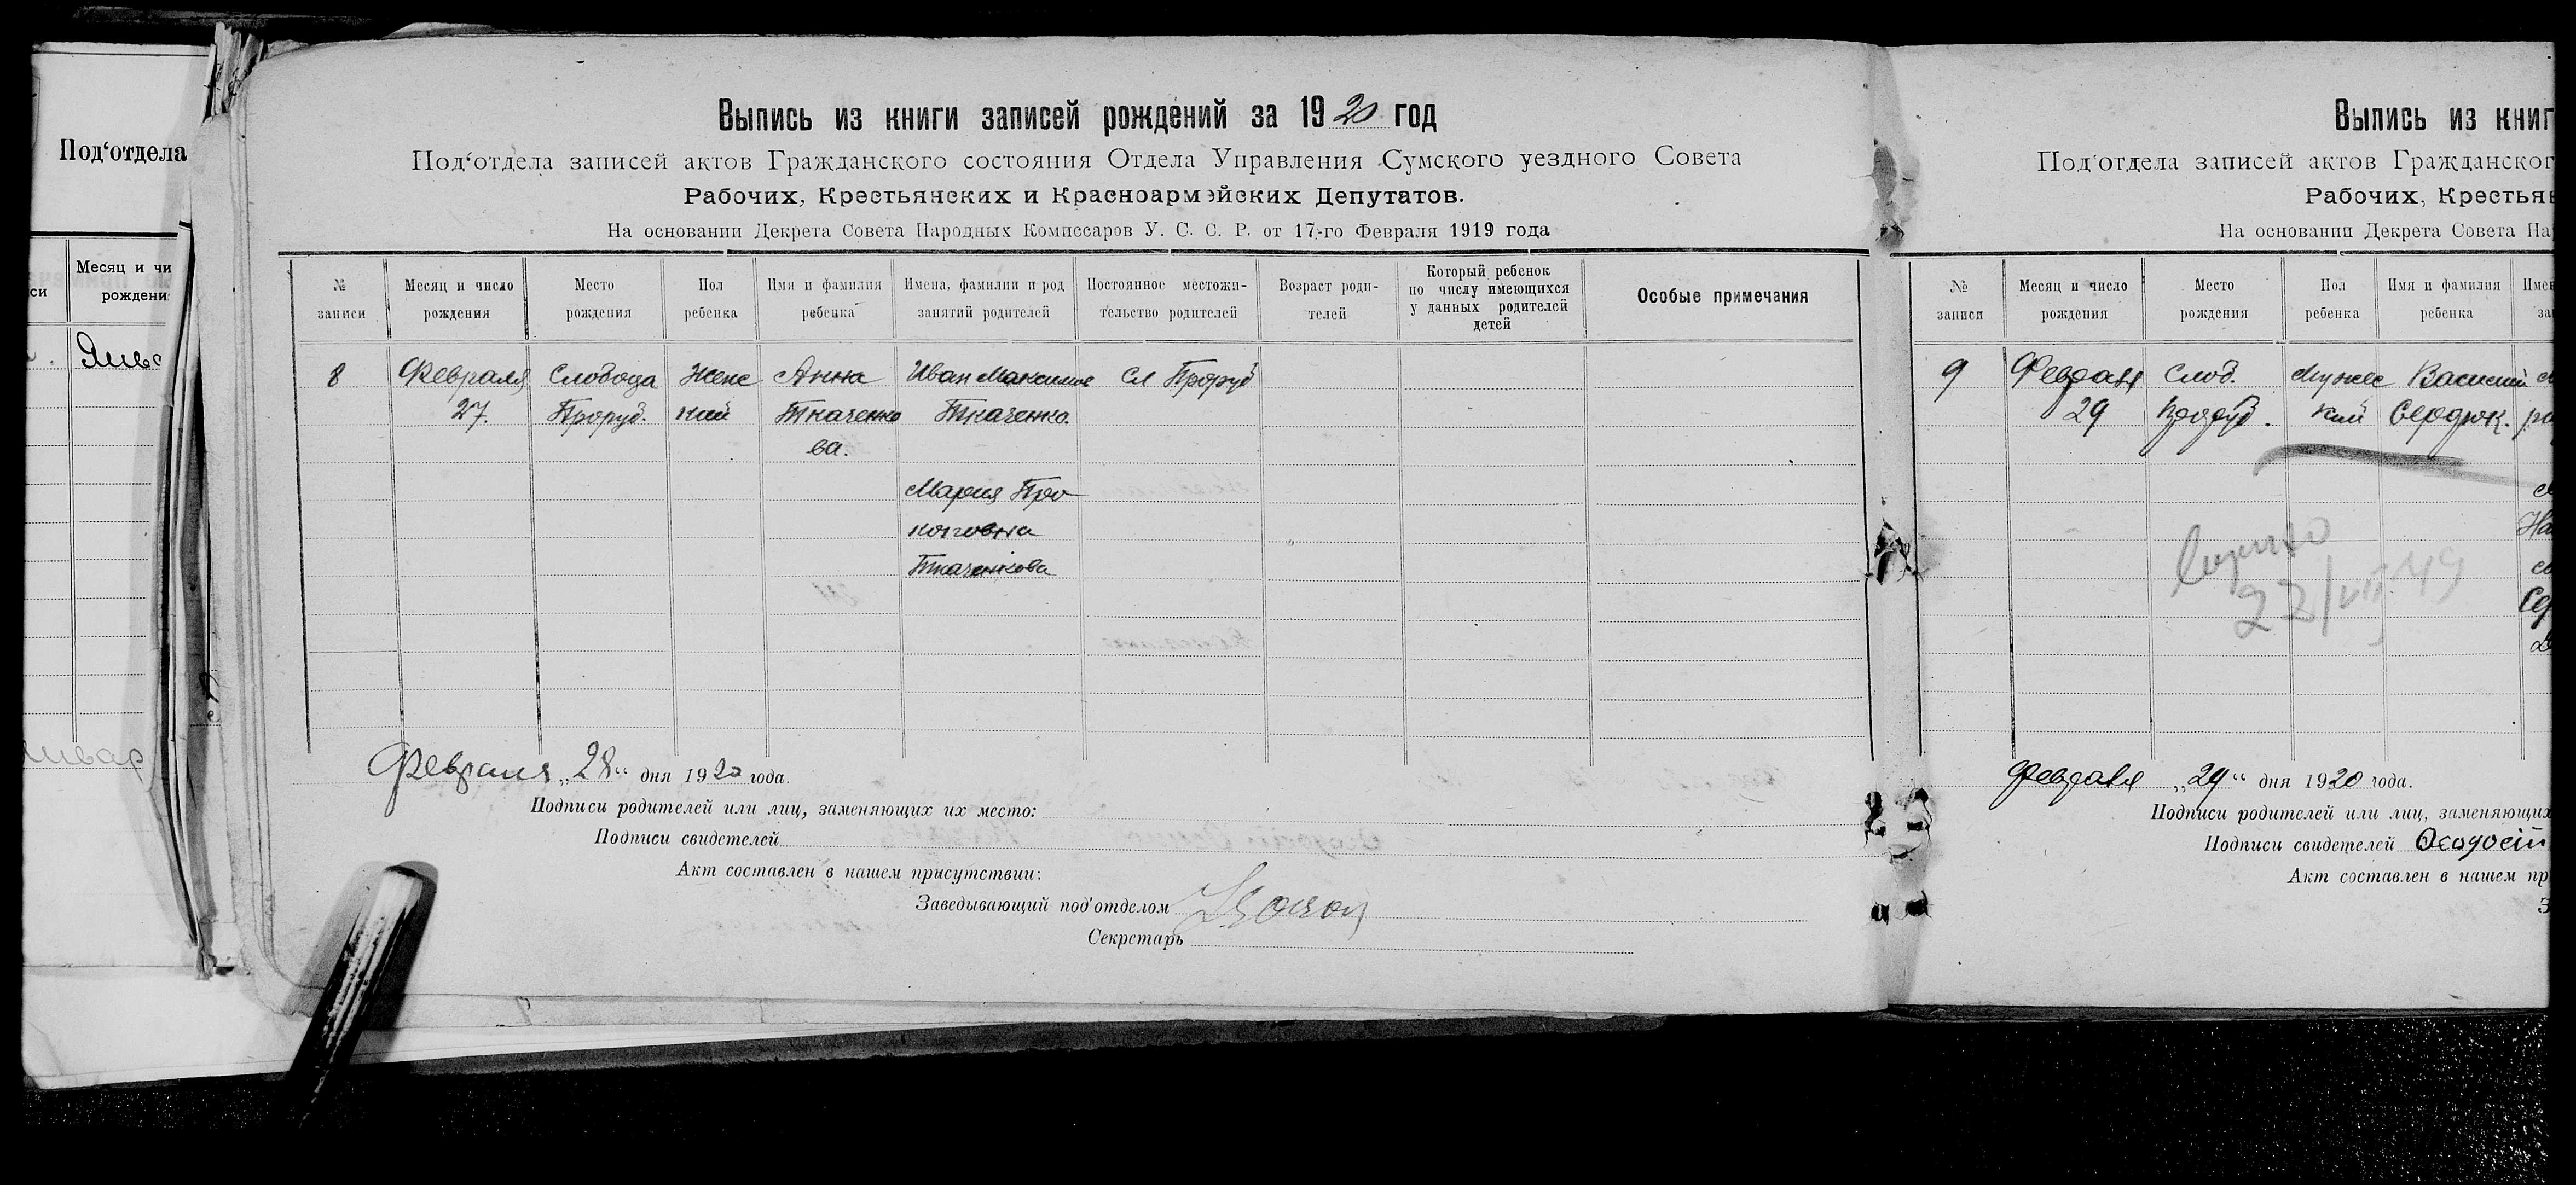 Под‘отдела
Месяц и чи
си рождени
Янва
Выпись из книги записей рождений за 1920 год
Под‘отдела записей актов Гражданского состояния Отдела Управления Сумского уездного Совета
Рабочих, Крестьянских и Красноармейских Депутатов.
На основании Декрета Совета Народных Комиссаров У. С. С. Р. от 17-го Февраля 1919 года
№ записи
Месяц и число рождения
Место рождения
Пол ребенка
Имя и фамилия ребенка
Имена, фамилии и род занятий родителей
Постоянное местожительство родителей
Возраст родителей
Который ребенок по числу имеющихся у данных родителей детей
Особые примечания
8 Февраля Слобода Женс Анна Иван Максимов Сл Проруб
27. Проруб. кий Ткаченко Ткаченко.
ва.
Мария Про
коповна
Ткаченкова
Февраля „28“ дня 1920 года.
Подписи родителей или лиц, заменяющих их место:
Подписи свидетелей
Акт составлен в нашем присутствии:
Заведывающий под‘отделом
Секретарь
Выпись из книг
Под‘отдела записей актов Гражданског
Рабочих, Крестьян
На основании Декрета Совета На
№ записи
Месяц и число рождения
Место рождения
Пол ребенка
Имя и фамилия ребенка
Имен
за
9 Февраля Слод. Мужес Василий
29 Проруб. кий Сердюк.
22/VII 49
Февраля „29“ дня 1920 года.
Подписи родителей или лиц, заменяющих
Подписи свидетелей Феодосій
Акт составлен в нашем пр
З